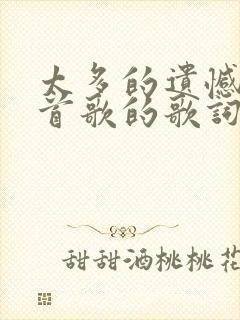 太多的遺憾
首歌的歌詞
甜甜酒桃桃花